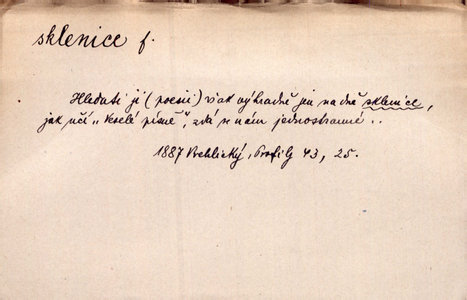 sklenice f.
Hledati ji (poesii) však výhradně jen na dně sklenice,
jak učí „Veselé písně“, zdá se nám jednostranné ..
1887 Vrchlický, Profily 43, 25.